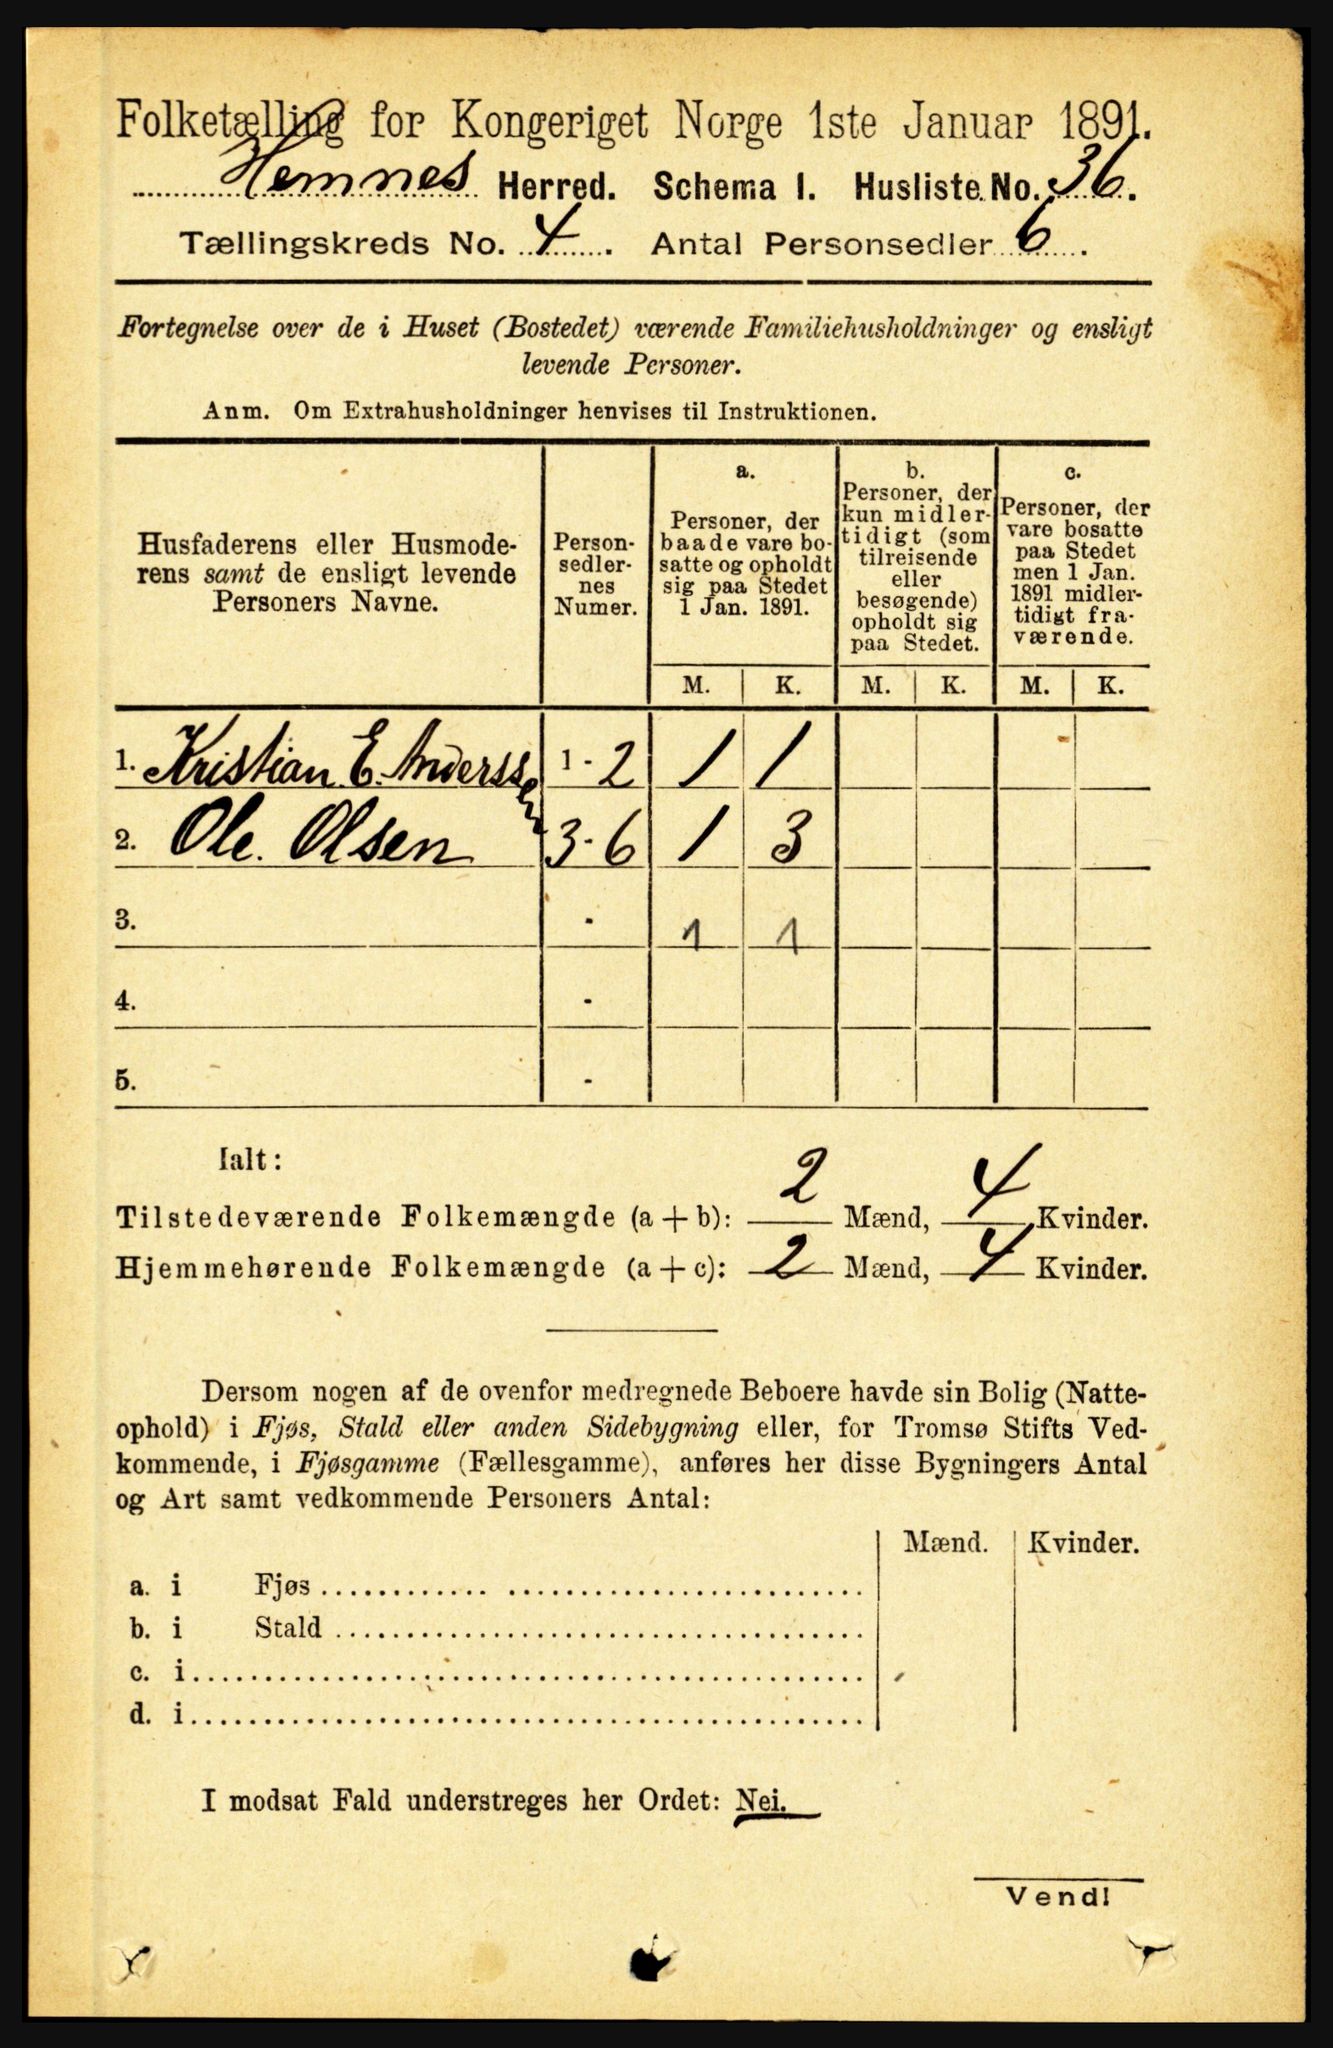 Folketælling for Kongeriget Norge 1ste Januar 1891.
Hemnes Herred. Schema I. Husliste No. 36.
Tællingskreds No. 4. Antal Personsedler 6.
Fortegnelse over de i Huset (Bostedet) værende Familiehusholdninger og ensligt
levende Personer.
Anm. Om Extrahusholdninger henvises til Instruktionen.
Husfaderens eller Husmode-
rens samt de ensligt levende
Personers Navne.
Person-
sedler-
nes
Numer.
a.
Personer, der
baade vare bo-
satte og opholdt
sig paa Stedet
1 Jan. 1891.
b.
Personer, der
kun midler-
tidigt (som
tilreisende
eller
besøgende)
opholdt sig
paa Stedet.
c.
Personer, der
vare bosatte
paa Stedet
men 1 Jan.
1891 midler-
tidigt fra-
værende.
M. K. M. K. M. K.
1. Kristian E. Anderssen 1 - 2 1 1
2. Ole. Olsen 3 - 6 1 3
3. - 1 1
4. -
5. -
Ialt:
Tilstedeværende Folkemængde (a + b): 2 Mænd, 4 Kvinder.
Hjemmehørende Folkemængde (a + c): 2 Mænd, 4 Kvinder.
Dersom nogen af de ovenfor medregnede Beboere havde sin Bolig (Natte-
ophold) i Fjøs, Stald eller anden Sidebygning eller, for Tromsø Stifts Ved-
kommende, i Fjøsgamme (Fællesgamme), anføres her disse Bygningers Antal
og Art samt vedkommende Personers Antal:
Mænd. Kvinder.
a. i Fjøs
b. i Stald
c. i
d. i
I modsat Fald understreges her Ordet: Nei.
Vend!